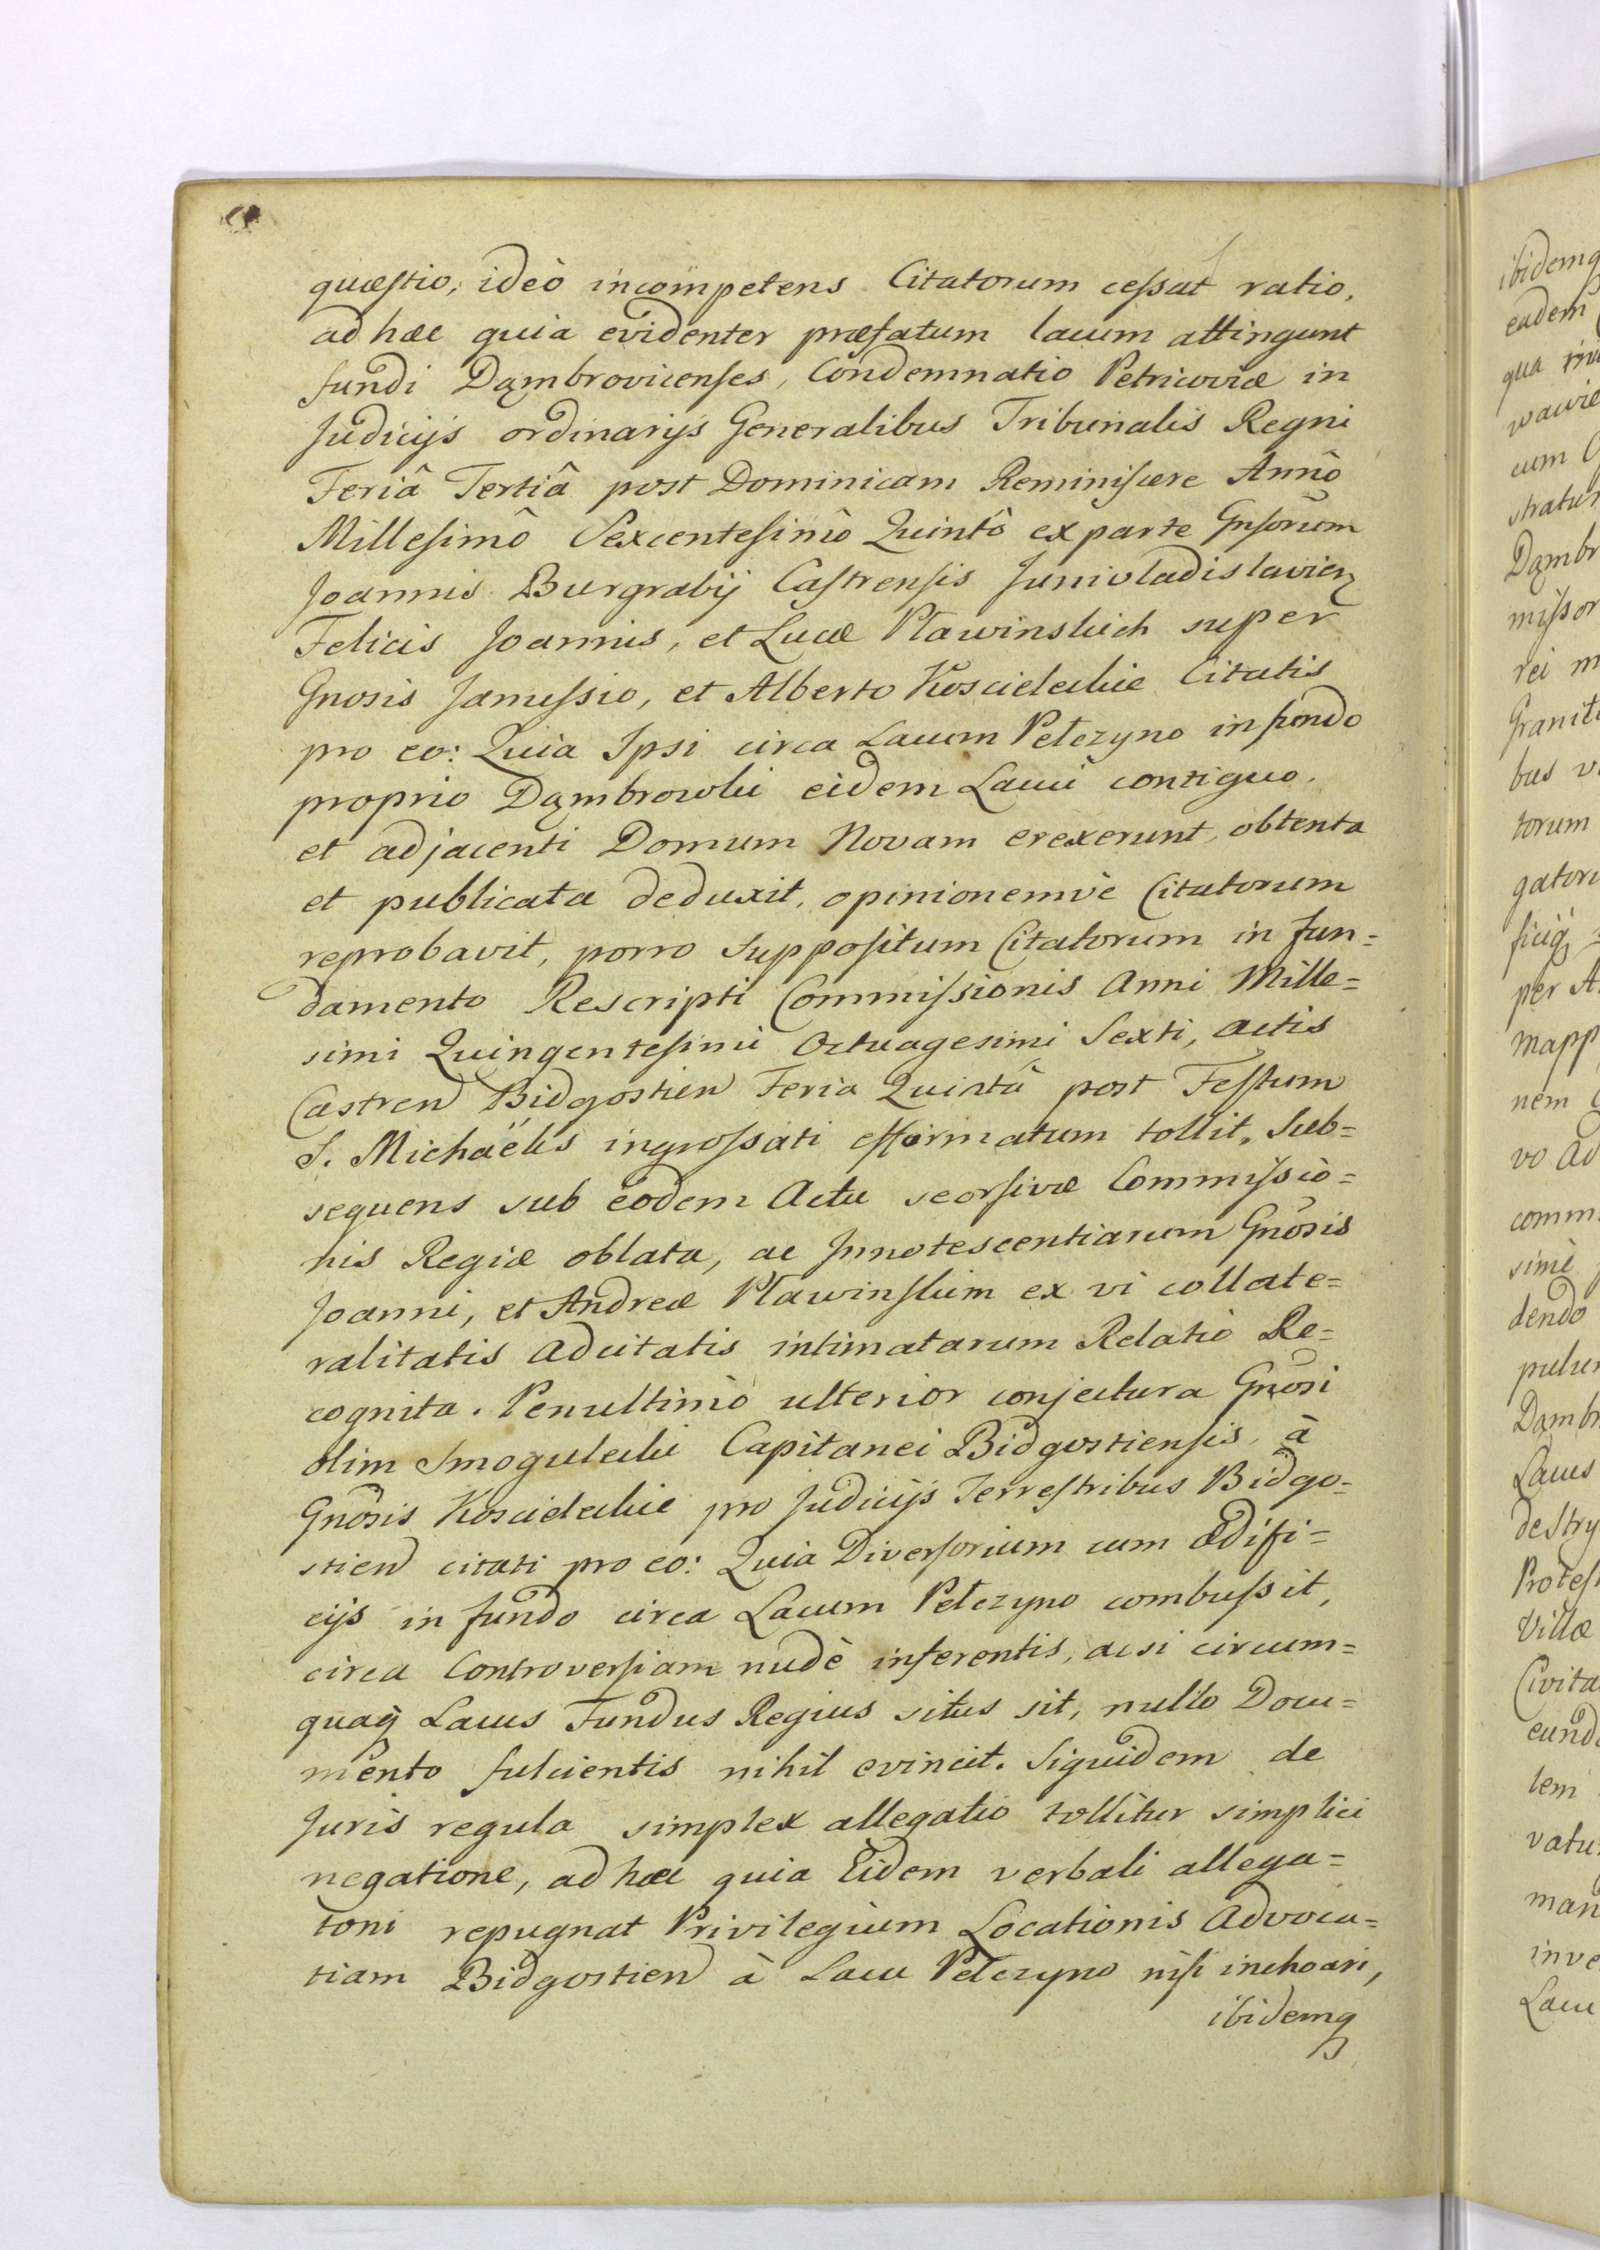 quæstio, ideò incompetens Citatorum cessat ratio,
ad hæc quia evidenter præfatum lacum attingunt
fundi Dąmbrovicenses, Condemnatio Petricoviæ in
Judicijs ordinarijs Generalibus Tribunalis Regni
Feriâ Tertiâ post Dominicam Reminiscere Annô
Millesimô Sexcentesimô Quintô ex parte Gnsorum
Joannis Burgrabij Castrensis Junivladislavien
Felicis Joannis, et Lucæ Pławinskich super
Gnosis Janussio, et Alberto Koscieleckie Citatis
pro eo: Quia Ipsi circa Lacum Pelczyno in fundo
proprio Dąmbrowki eidem Lacui contiguo,
et adjacenti Domum Novam erexerunt, obtenta
et publicata deduxit, opinionemvè Citatorum
reprobavit, porro suppositum Citatorum in fun=
damento Rescripti Commissionis Anni Mille=
simi Quingentesimi Octuagesimi Sexti, actis
Castren Bidgostien Feria Quintâ post Festum
S. Michaëlis ingrossati efformatum tollit, Sub=
sequens sub eodem Actu seorsivæ Commissio=
nis Regiæ oblata, ac Innotescentiarum Gnosis
Joanni, et Andreæ Pławinskim ex vi collate=
ralitatis adcitatis intimatarum Relatio Re=
cognita. Penultimò ulterior conjectura Gnosi
olim Smogulecki Capitanei Bidgostiensis, à
Gnosis Koscieleckie pro Judicijs Terrestribus Bidgo=
stien citati pro eo: Quia Diversorium cum ædifi=
cijs in fundo circa Lacum Pelczyno combussit,
circa Controversiam nudè inferentis, acsi circum=
quaq Lacus Fundus Regius situs sit, nullo Docu=
mento fulcientis nihil evincit. Siquidem de
Juris regula simplex allegatio tollitur simplici
negatione, ad hæc quia Eidem verbali allega=
toni repugnat Privilegium Locationis Advoca=
tiam Bidgostien à Lacu Pelczyno nisi inchoari,
ibidemq